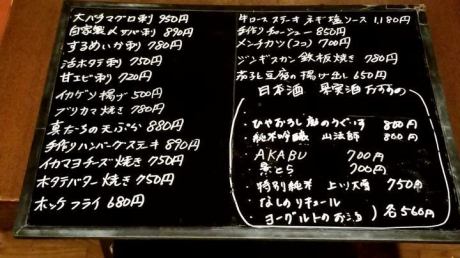 大バチマグロ刺 950円
自家製〆サバ刺 890円
するめいか刺 780円
活ホタテ刺 750円
甘エビ刺 720円
イカゲソ揚げ 500円
ブリカマ焼き 780円
真だらの天ぷら 880円
手作りハンバーグステーキ 890円
イカマヨチーズ焼き 750円
ホタテバター焼き 750円
ホッケフライ 680円
牛ロースステーキ ネギ塩ソース 1,180円
手作りチャーシュー 850円
メンチカツ(2コ) 700円
ジンギスカン鉄板焼き 780円
豆腐の揚げ出し 650円
日本酒 果実酒 おすすめ
ひやおろし 庭のうぐいす 800円
純米吟醸 山法師 800円
AKABU 700円
黒とら 700円
特別純米 上川大雪 750円
なしのリキュール
ヨーグルトのお酒 各560円